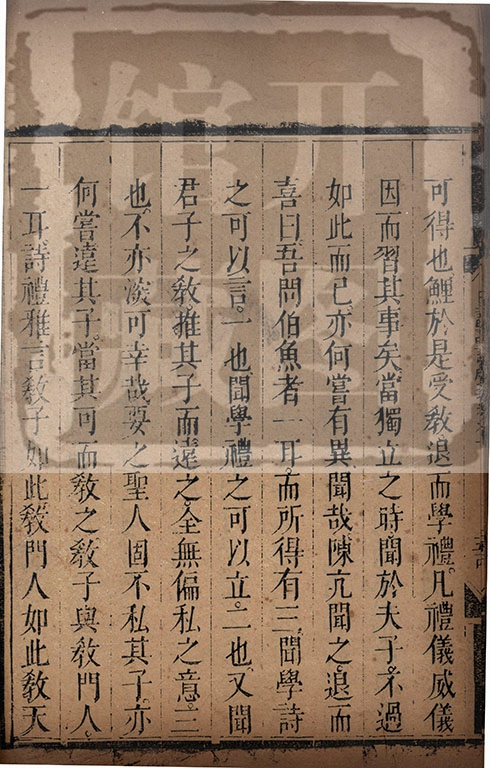 可得也鯉於是受敎退而學禮。凡禮儀威儀
因而習其事矣當獨立之時聞於夫子。不過
如此而已亦何嘗有異聞哉陳亢聞之。退而
喜曰吾問伯魚者一耳。而所得有三。聞學詩
之可以言。一也聞學禮之可以立。二也又聞
君子之敎。推其子而遠之。全無偏私之意。三
也。不亦深可幸哉要之聖人固不私其子。亦
何嘗遠其子。當其可而敎之敎子與敎門人。
一耳詩禮雅言敎子如此敎門人如此敎天